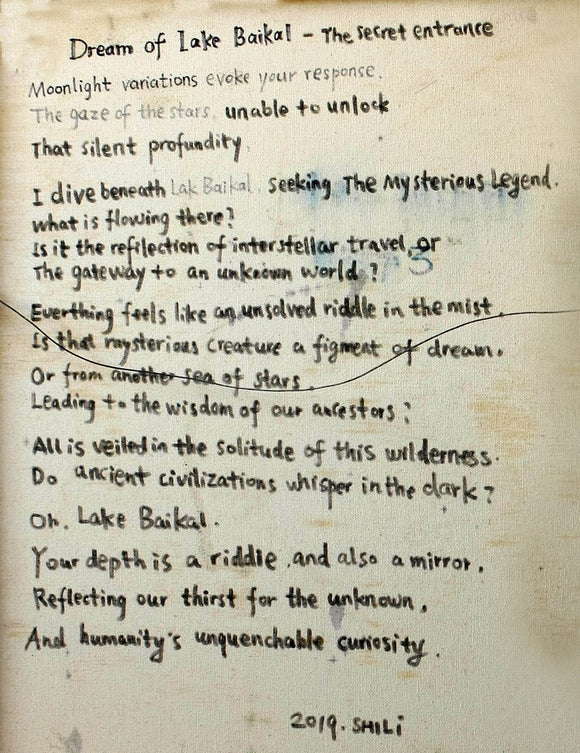 Dream of Lake Baikal - The secret entrance
Moonlight variations evoke your response.
The gaze of the stars. unable to unlock
That silent profundity.
I dive beneath Lak Baikal. seeking The Mysterious Legend.
what is flowing there?
Is it the refilection of interstellar travel, or
The gateway to an unknown world?
Everthing feels like an unsolved riddle in the mist.
Is that mysterious creature a figment of dream.
Or from another sea of stars.
Leading to the wisdom of our ancestors?
All is veiled in the solitude of this wilderness.
Do ancient civilizations whisper in the dark?
Oh. Lake Baikal.
Your depth is a riddle .and also a mirror.
Reflecting our thirst for the unknown.
And humanity's unquenchable curiosity.
2019. SHILi